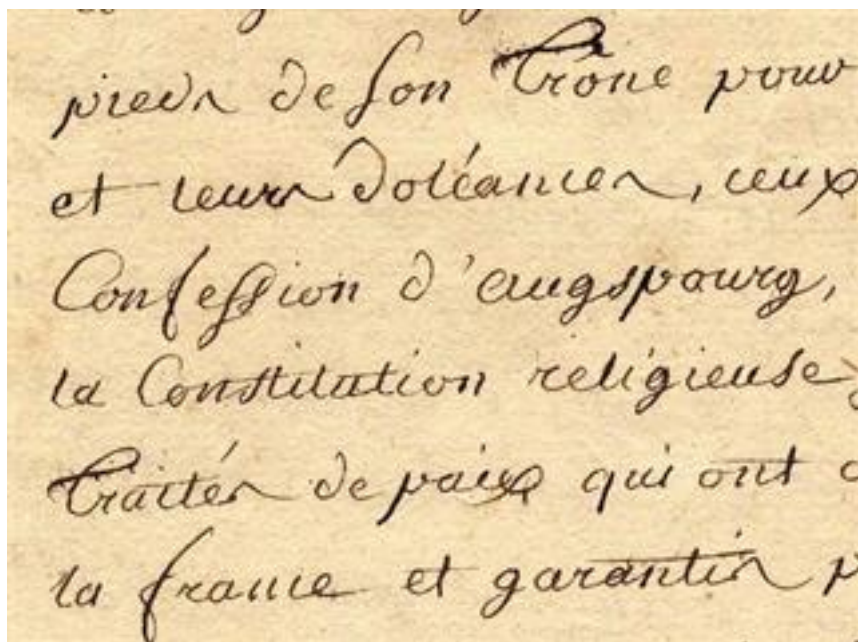 pieds de son Trône pour
et leurs doléances, ceux
Confession d'augspourg,
la Constitution religieuse
Traités de paix qui ont
la france et garantis